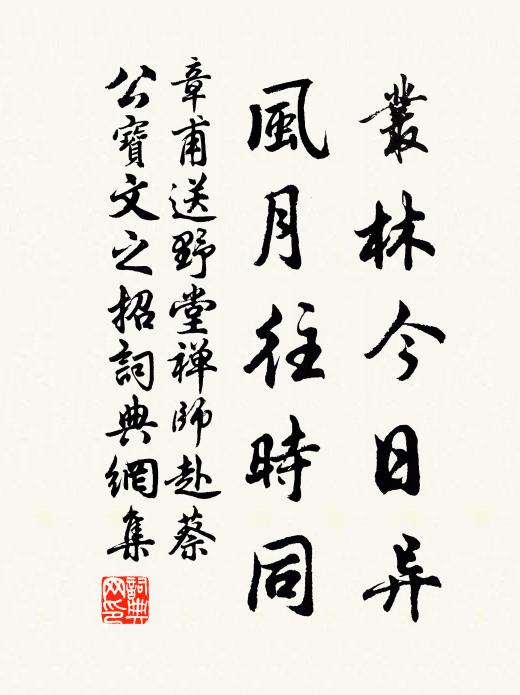 叢林今日异
風月往時同
章甫送野堂禅師赴蔡
公寶文之招詞典網集
詞典
网印